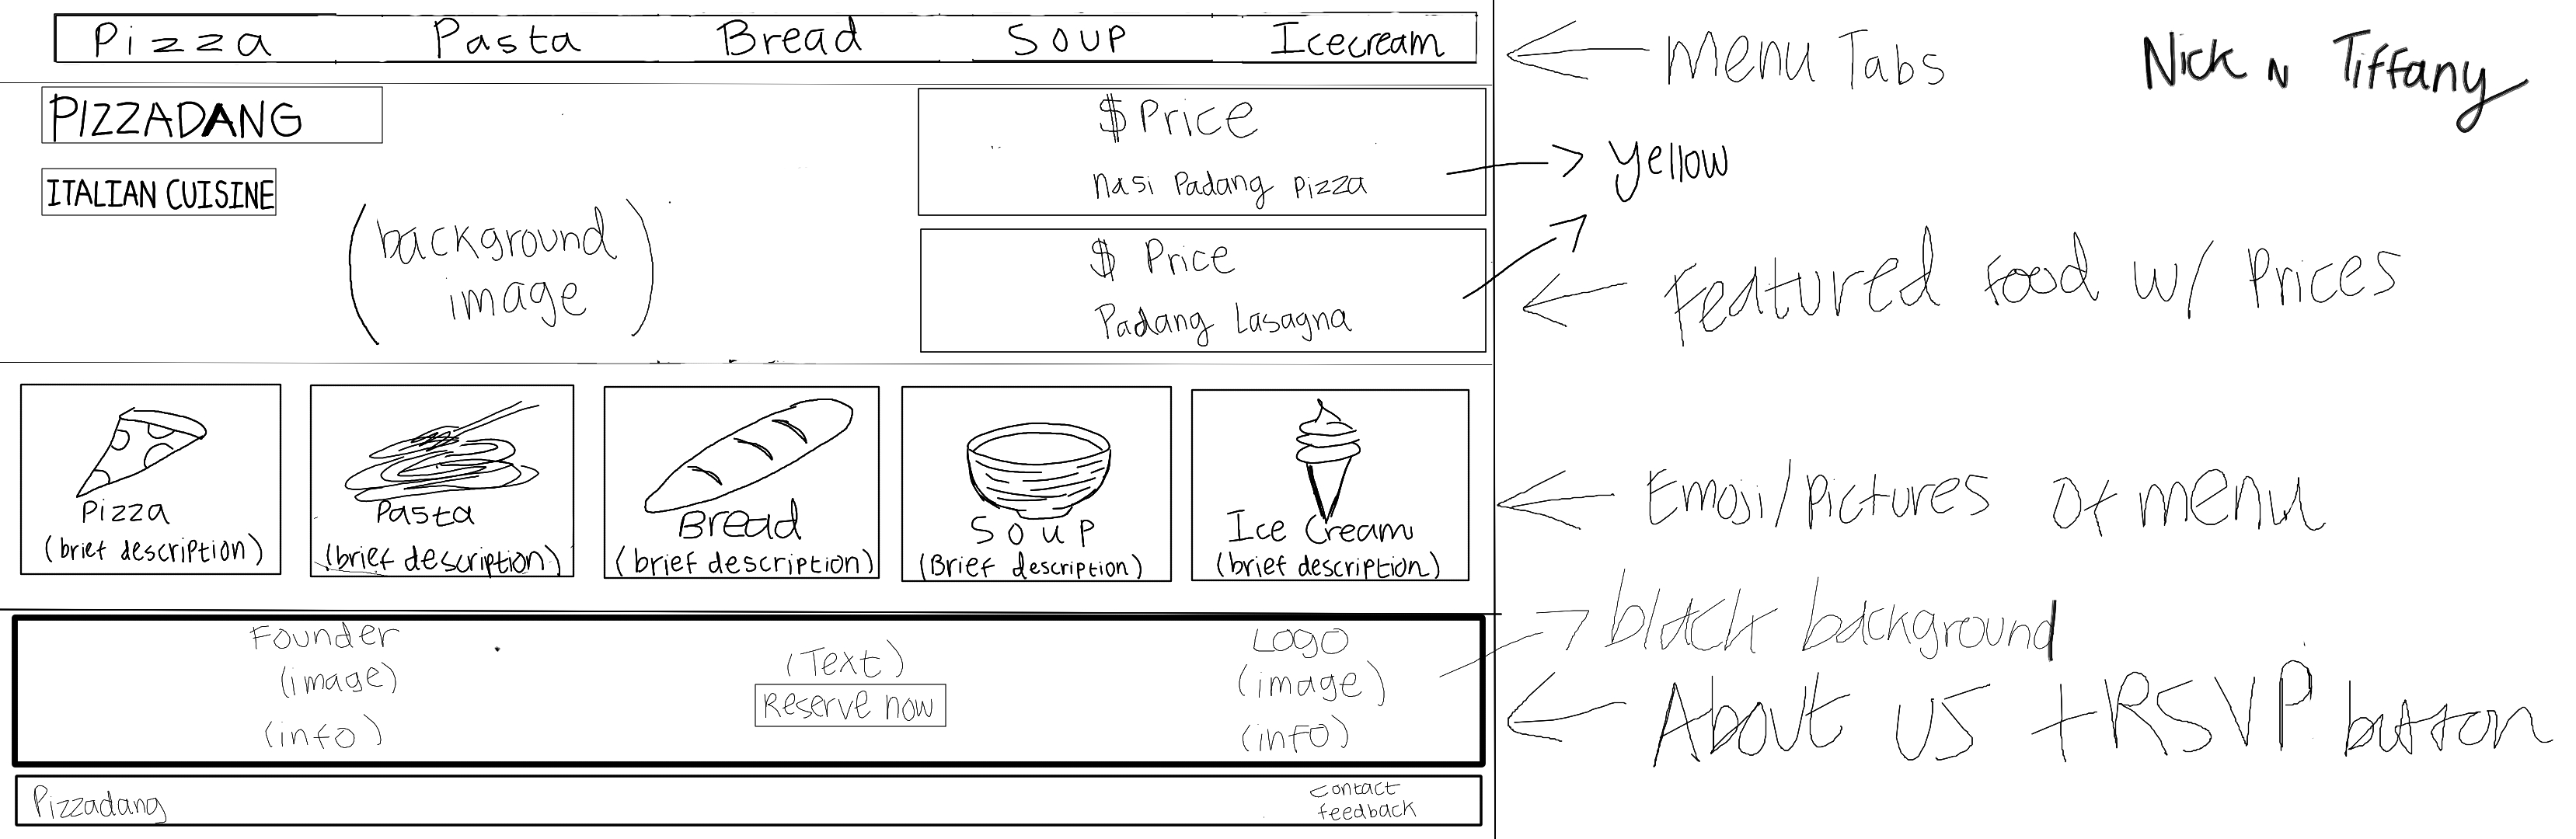 Pizza Pasta Bread Soup Icecream
Menu Tabs
Nick N Tiffany
PIZZADANG
ITALIAN CUISINE
(background
image)
$ Price
Nasi Padang Pizza
$ Price
Padang Lasagna
yellow
Featured food w/ Prices
Pizza
(brief description)
Pasta
(brief description)
Bread
(brief description)
Soup
(Brief description)
Ice Cream
(brief description)
Emoji/pictures of menu
Founder
(image)
(info)
(Text)
Reserve now
Logo
(image)
(info)
black background
About us + RSVP button
Pizzadang
contact
feedback